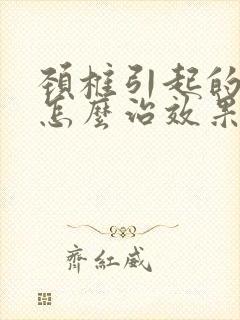 頚椎引起的
怎麼治效果
齊紅威